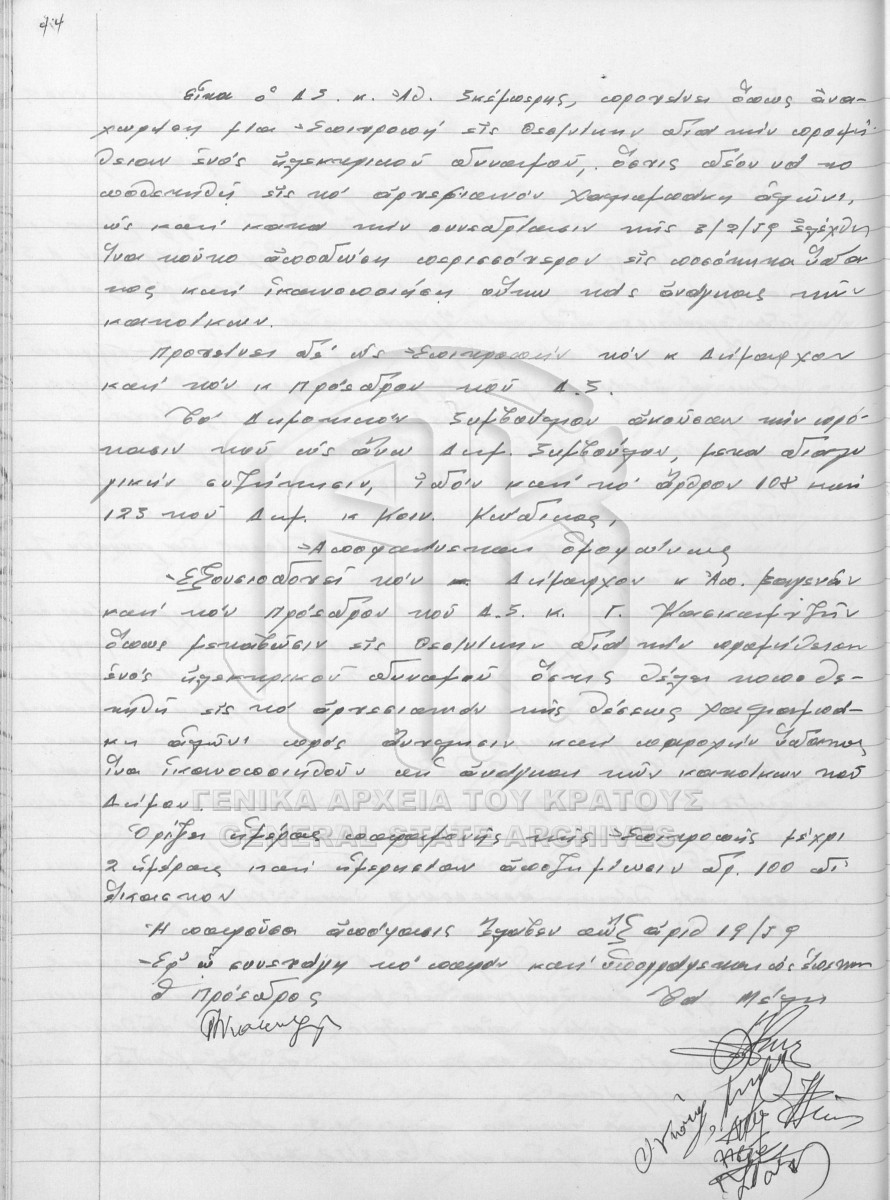 44
εἶτα ὁ Δ.Σ. κ. Ἀθ. Σκέμπερης, προτείνει ὅπως ἀνα-
χωρήση μια Ἐπιτροπή εἰς Θεσ/νίκην διά τήν προμή-
θειαν ἑνός ἠλεκτρικοῦ δυναμοῦ, ὅστις δέον νά το
ποθετηθῆ εἰς τό ἀρτεσιανόν
ὡς καί κατα τήν συνεδρίασιν τῆς 3/2/59 ἐλέχθη
ἵνα τοῦτο ἀποδώση περισσότερον εἰς ποσότητα ὕδα
τος καί ἱκανοποιήση οὕτω τάς ἀνάγκας τῶν
κατοίκων.
Προτείνει δέ ὡς Ἐπιτροπήν τόν κ Δήμαρχον
καί τόν κ Πρόεδρον τοῦ Δ.Σ.
Τό Δημοτικόν Συμβούλιον ἀκοῦσαν τήν πρό-
τασιν τοῦ ὡς ἄνω Δημ. Συμβούλου, μετα διαλο
γικήν συζήτησιν, ἰδόν καί τό ἄρθρον 108 καί
123 τοῦ Δημ. κ Κοιν. Κώδικος,
Ἀποφαίνεται ὁμοφώνως
Ἐξουσιοδοτεῖ τόν Δήμαρχον κ Ἀπ.
καί τόν Πρόεδρον τοῦ Δ.Σ. κ. Γ.
ὅπως μεταβῶσιν εἰς Θεσ/νίκην διά τήν προμήθειαν
ἑνός ἠλεκτρικοῦ δυναμοῦ ὅστις θέλει τοποθε-
τηθῆ εἰς τό ἀρτεσιανόν τῆς θέσεως
πρός ἄντλησιν καί παροχήν ὕδατος
ἵνα ἱκανοποιηθοῦν αἱ ἀνάγκαι τῶν κατοίκων τοῦ
Δήμου.
ΓΕΝΙΚΑ ΑΡΧΕΙΑ ΤΟΥ ΚΡΑΤΟΥΣ
GENERAL STATE ARCHIVES
Ὁρίζει ἡμέρας παραμονῆς τῆς Ἐπιτροπῆς μέχρι
2 ἡμέρας καί ἡμερησίαν ἀποζημίωσιν δρ. 100 δι
ἕκαστον
Ἡ παροῦσα ἀπόφασις ἔλαβεν αὔξ ἀριθ 19/59
Ἐφ' ᾧ συνετάγη τό παρόν καί ὑπογράφεται ὡς ἕπεται
Ὁ Πρόεδρος Τά Μέλη